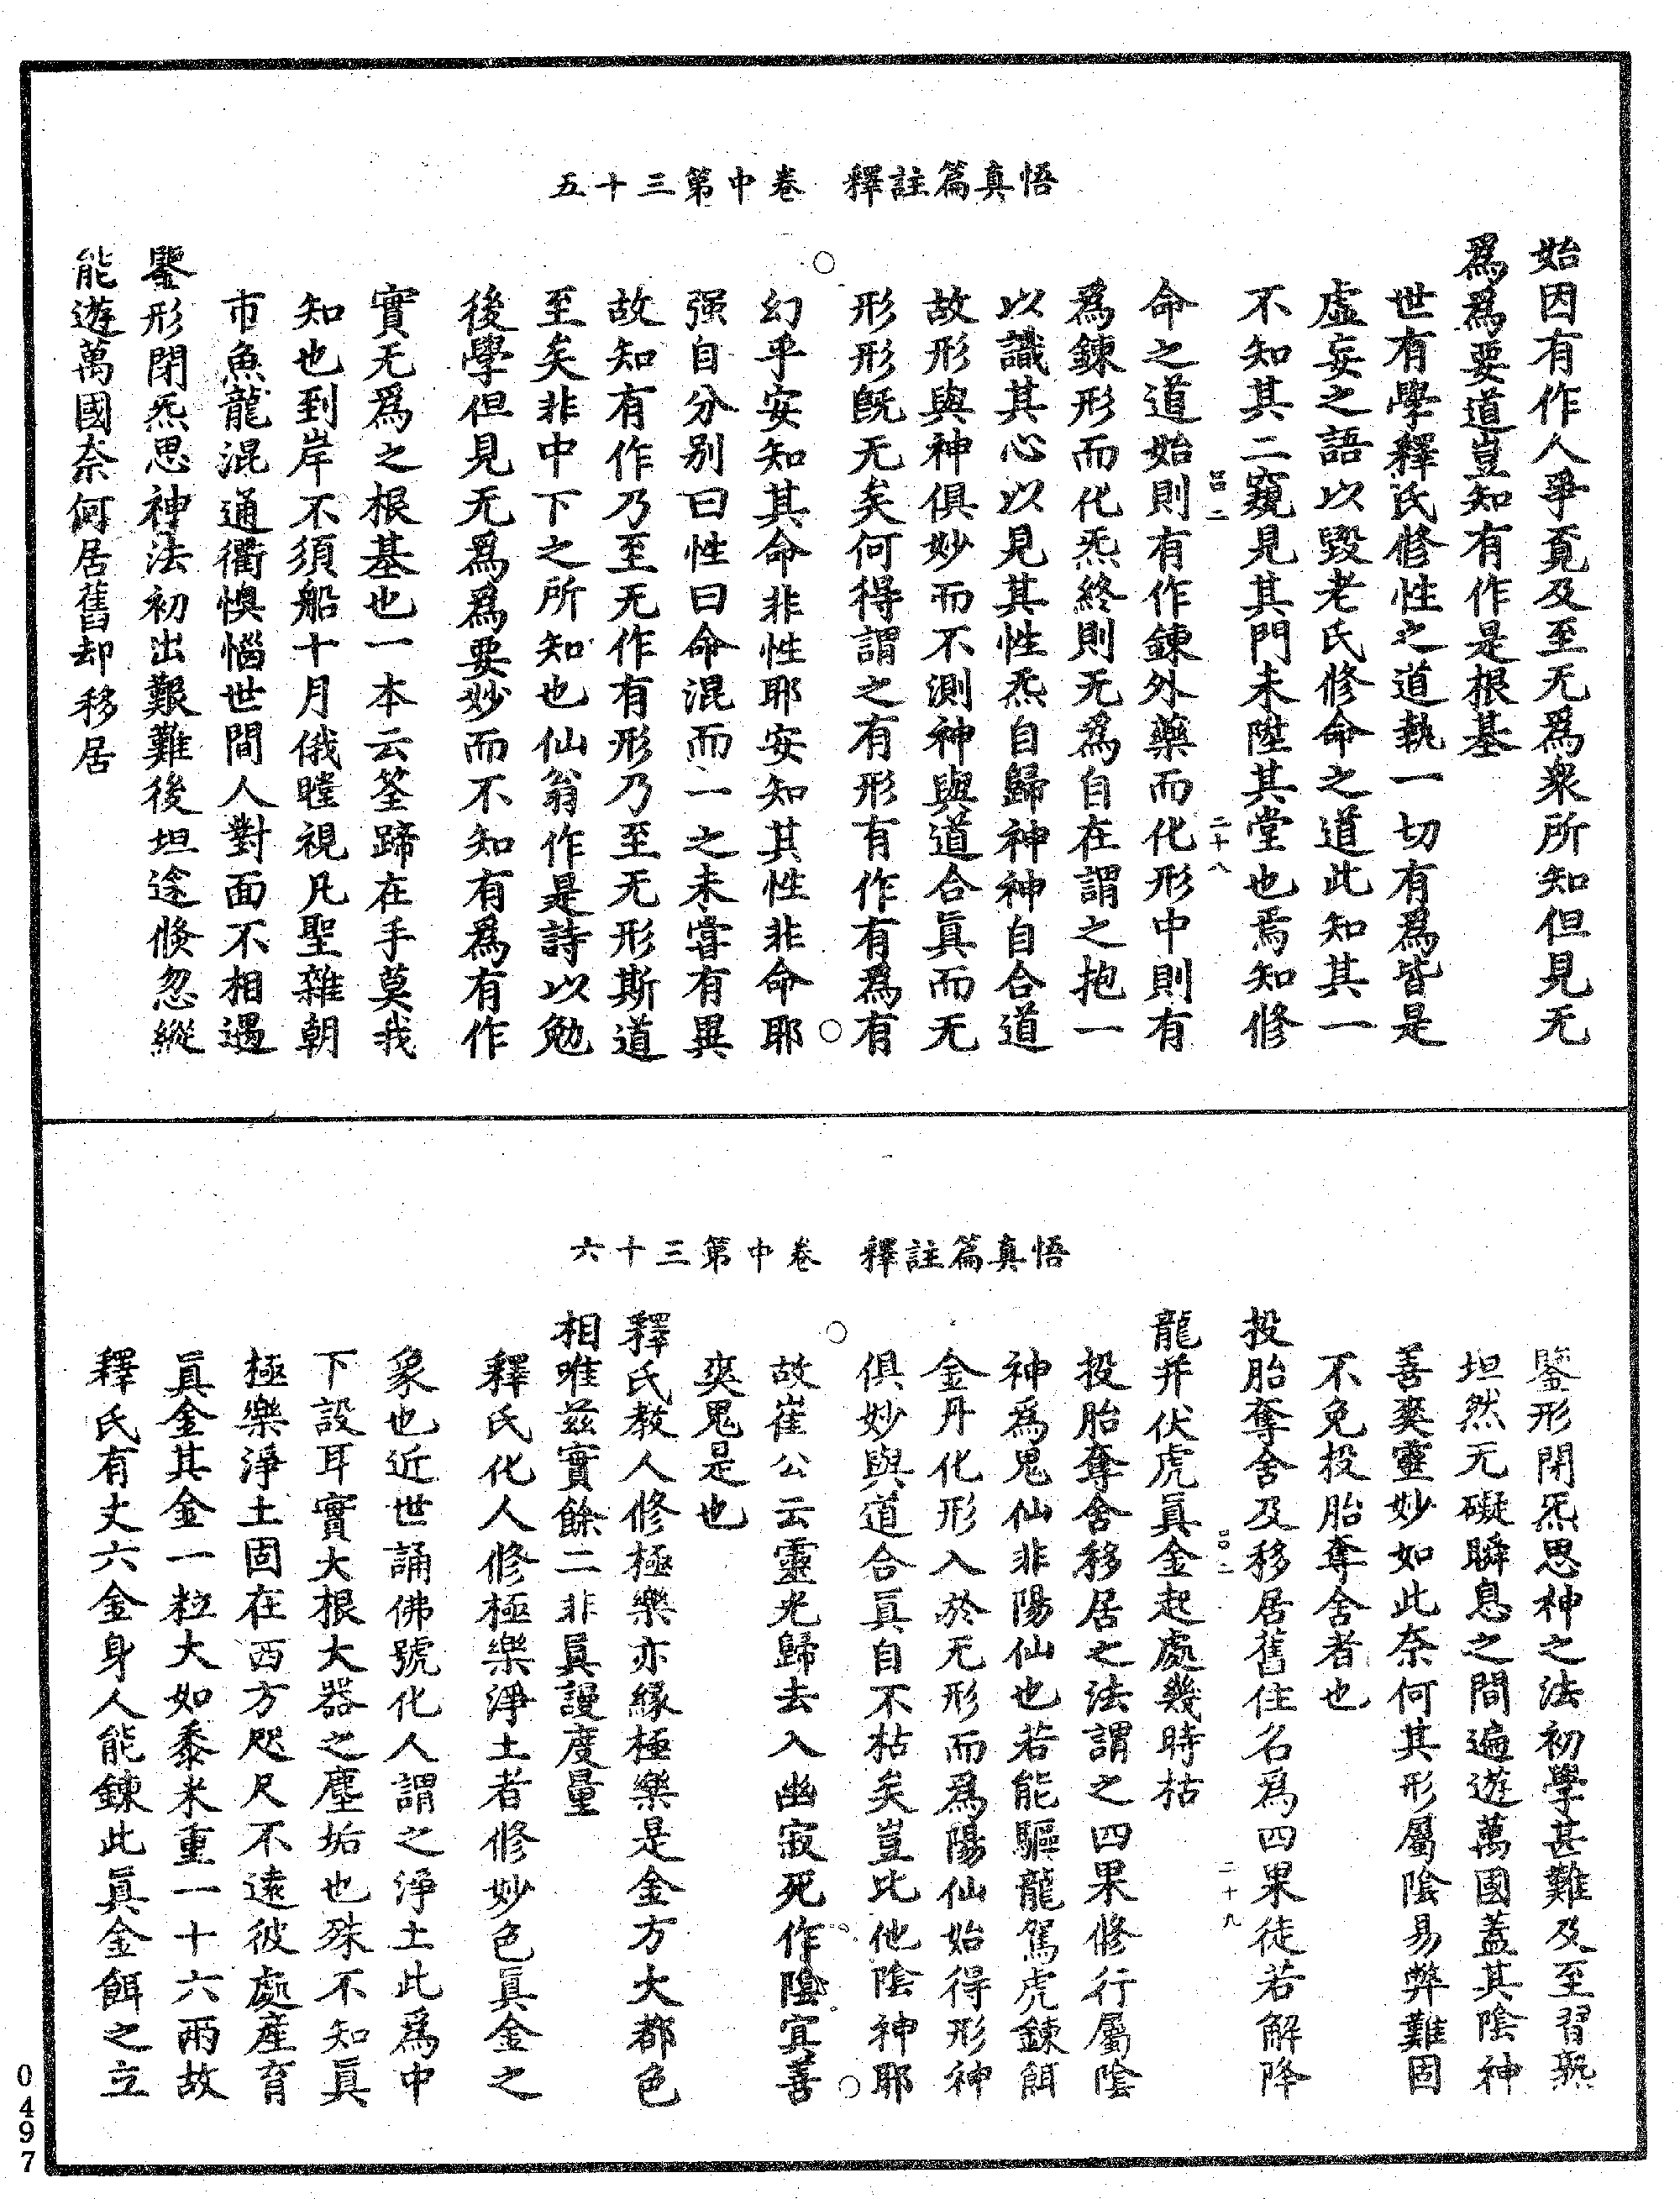 悟真篇註釋　卷中第三十五
始因有作人爭覔及至无爲衆所知但見无
爲爲要道豈知有作是根基
世有學釋氏修性之道執一切有爲皆是
虛妄之語以毀老氏修命之道此知其一
不知其二窺見其門未陞其堂也焉知修
命之道始則有作鍊外藥而化形中則有
爲鍊形而化炁終則无爲自在謂之抱一
以識其心以見其性炁自歸神神自合道
故形與神俱妙而不測神與道合眞而无
形形旣无矣何得謂之有形有作有爲有
幻乎安知其命非性耶安知其性非命耶
强自分别曰性曰命混而一之未嘗有異
故知有作乃至无作有形乃至无形斯道
至矣非中下之所知也仙翁作是詩以勉
後學但見无爲爲要妙而不知有爲有作
實无爲之根基也一本云筌蹄在手莫我
知也到岸不須船十月俄瞠視凡聖雜朝
市魚龍混通衢懊惱世間人對面不相遇
鑒形閉炁思神法初出艱難後坦途倐忽縱
能遊萬國奈何居舊却移居
四二
二十八
悟真篇註釋　卷中第三十六
鑒形閉炁思神之法初學甚難及至習熟
坦然无礙瞬息之間遍遊萬國蓋其陰神
善爽靈妙如此奈何其形屬陰易弊難固
不免投胎奪舍者也
投胎奪舍及移居舊住名爲四果徒若解降
龍并伏虎眞金起處幾時枯
投胎奪舍移居之法謂之四果修行屬陰
神爲鬼仙非陽仙也若能驅龍駕虎鍊餌
金丹化形入於无形而爲陽仙始得形神
俱妙與道合眞自不枯矣豈比他陰神耶
故崔公云靈光歸去入幽寂死作陰㝠善
爽鬼是也
釋氏教人修極樂亦緣極樂是金方大都色
相唯兹實餘二非眞謾度量
釋氏化人修極樂淨土者修妙色眞金之
象也近世誦佛號化人謂之淨土此爲中
下設耳實大根大器之塵垢也殊不知眞
極樂淨土固在西方咫尺不遠彼處產育
眞金其金一粒大如黍米重一十六兩故
釋氏有丈六金身人能鍊此眞金餌之立
四二
二十九
0497